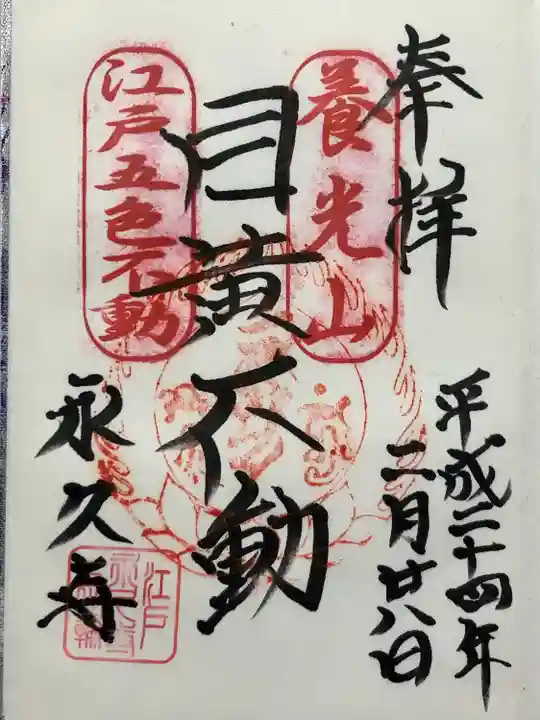 奉拝
平成二十四年
二月廿八日
養光山
目黄不動
江戸五色不動
永久寺
江戸